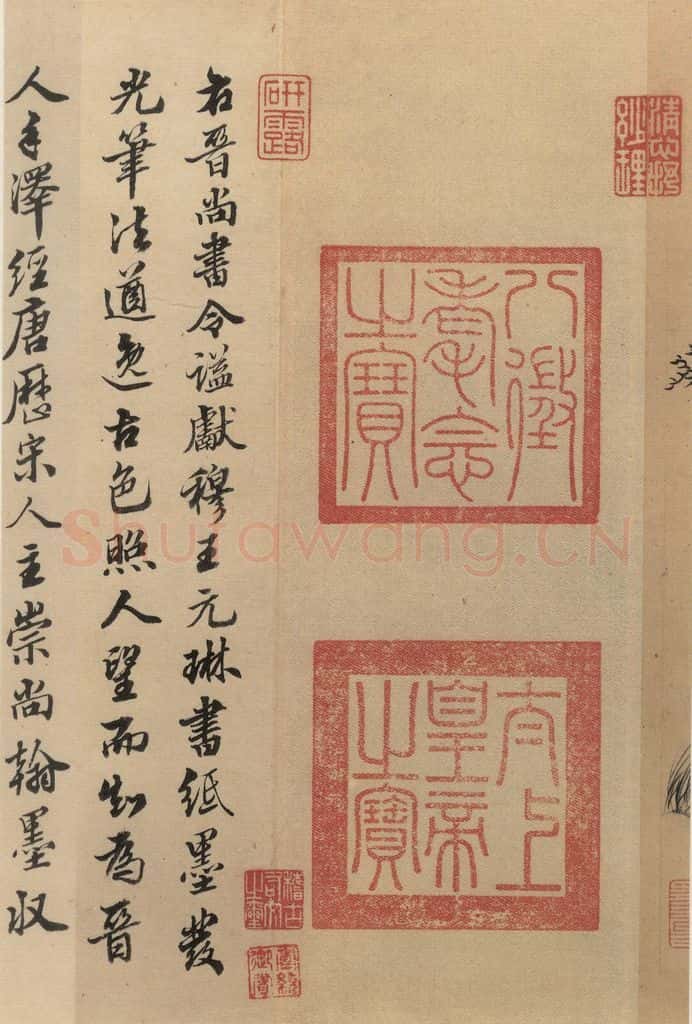 清心抒
妙理
八徵
耄念
之寶
太上
皇帝
之寶
研露
稽古
右文
之璽
右晉尚書令謚獻穆王元琳書紙墨發
光筆法遒逸古色照人望而知為晉
人手澤經唐歷宋人主崇尚翰墨収
Shufawang.CN